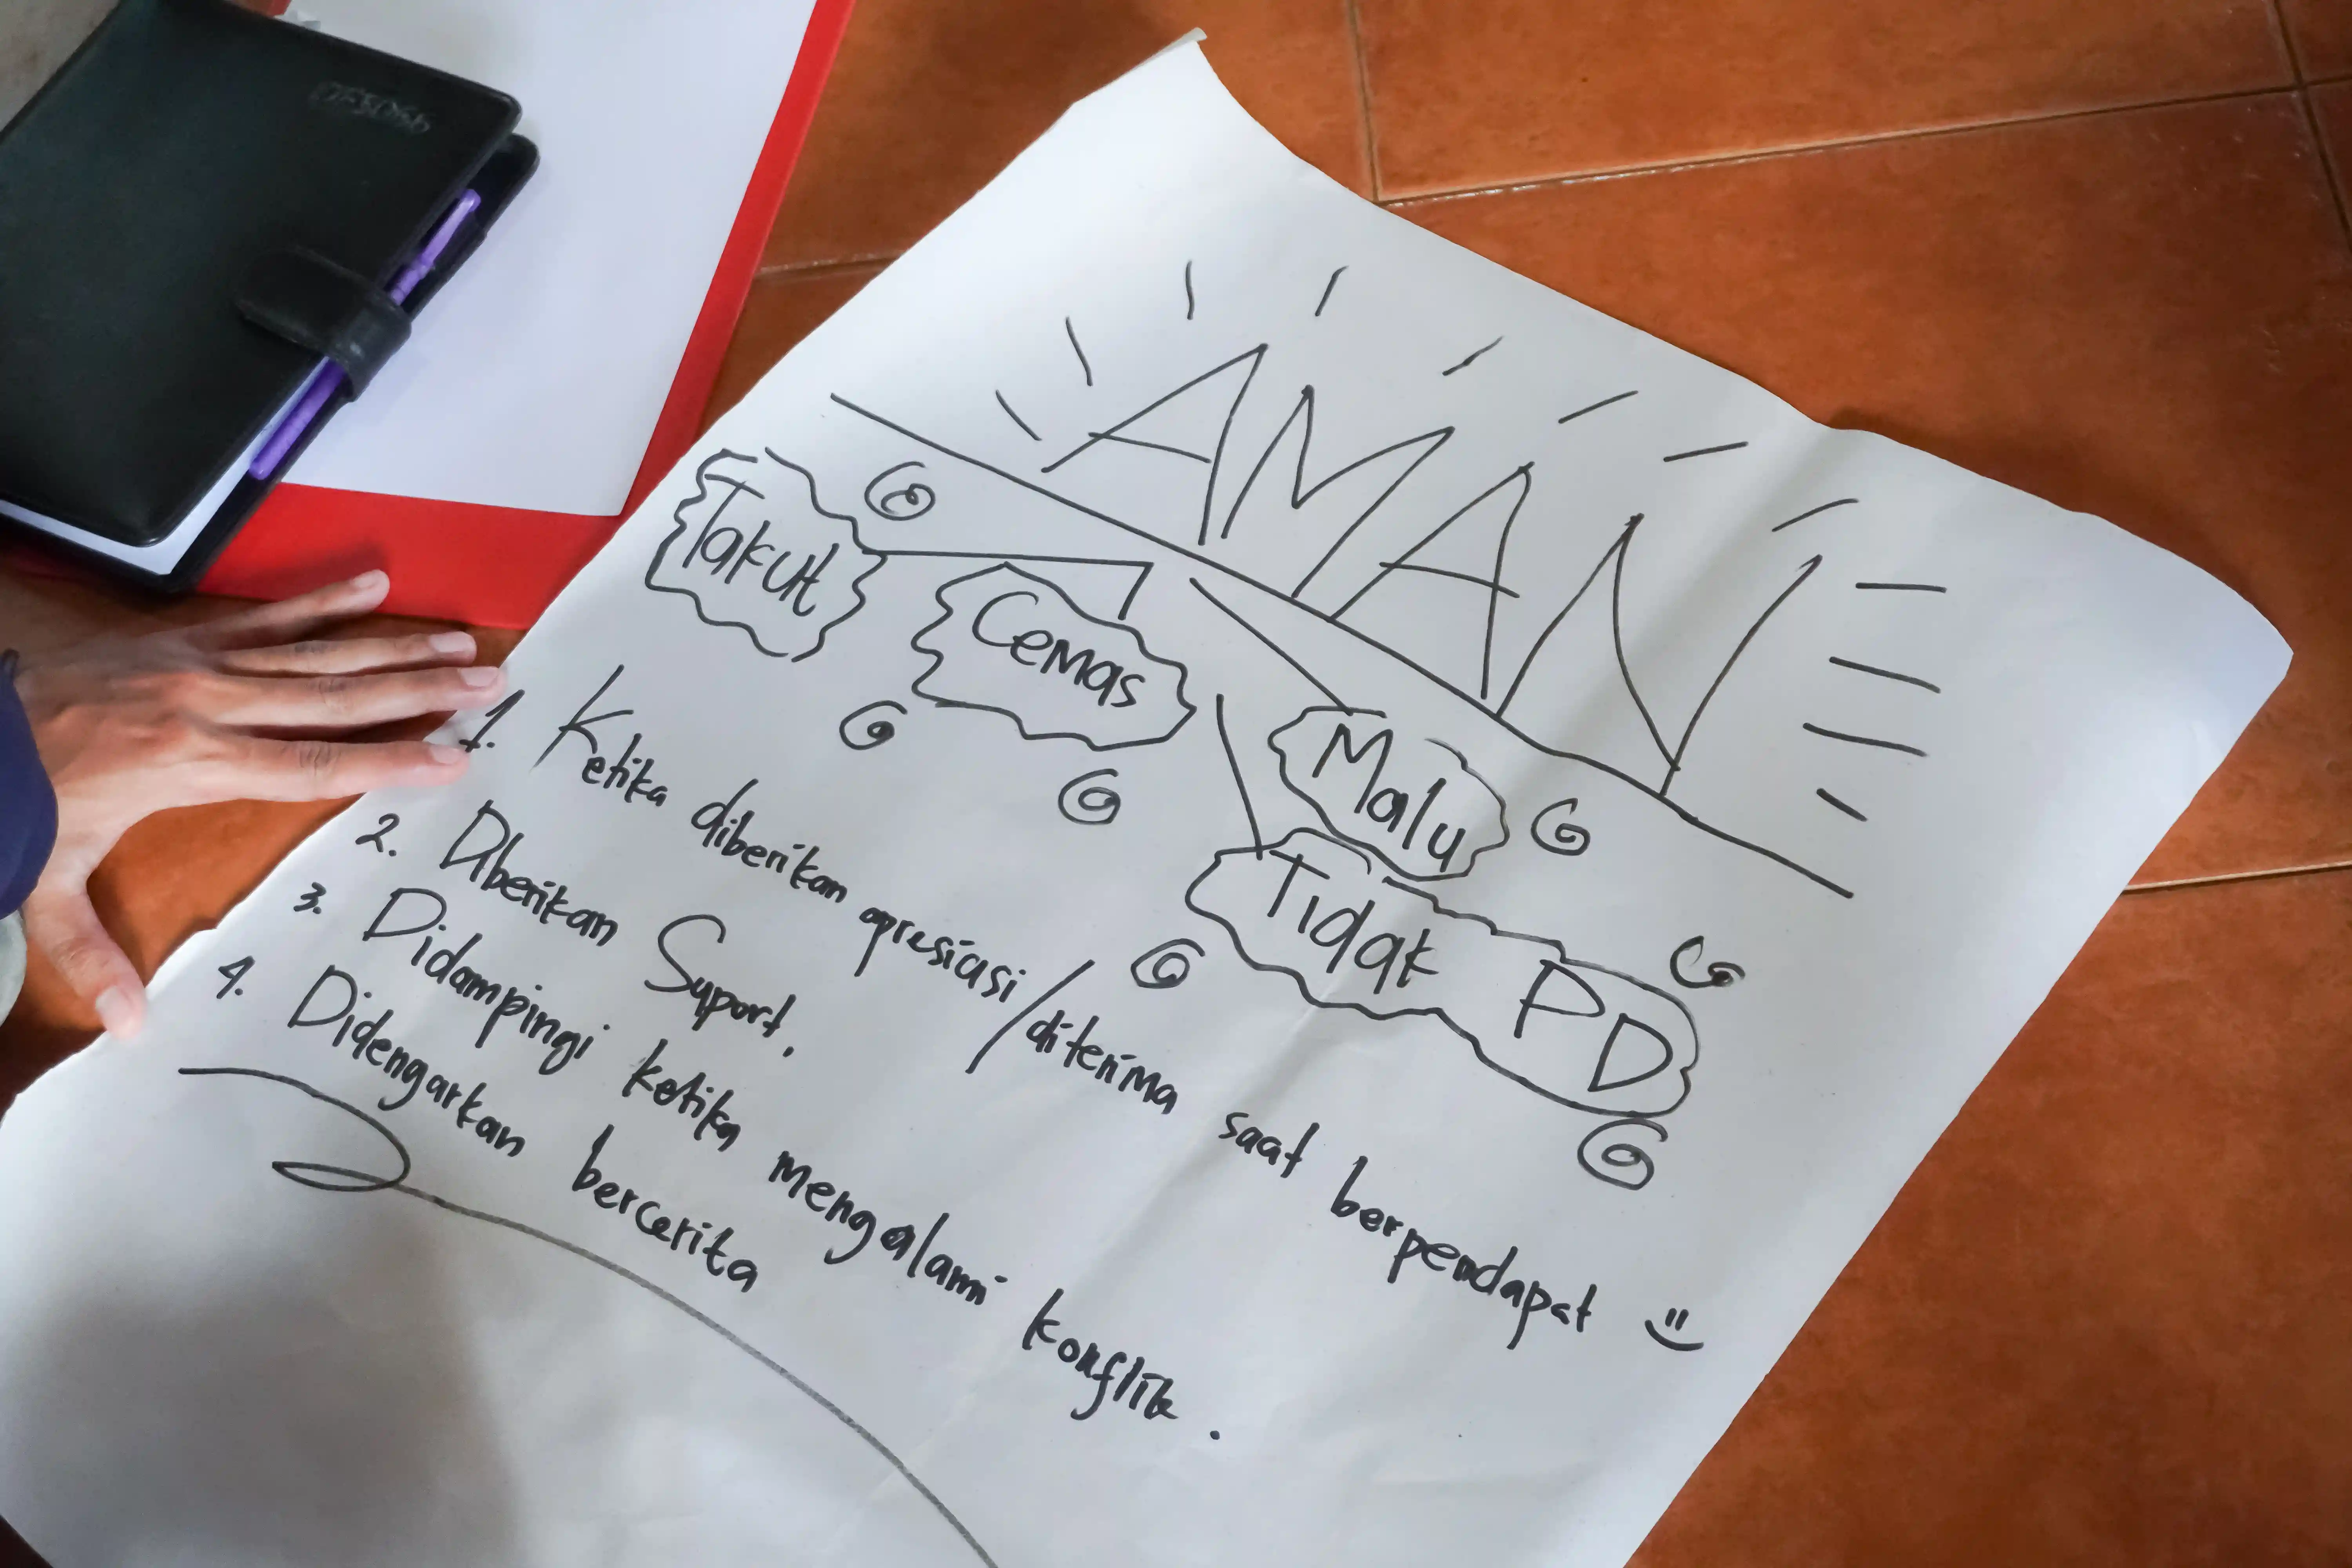 AMAN
Takut
Cemas
Malu
Tidak PD
1. Ketika diberikan apresiasi/diterima saat berpendapat
2. Diberikan Suport.
3. Didampingi ketika mengalami konflik.
4. Didengarkan bercerita